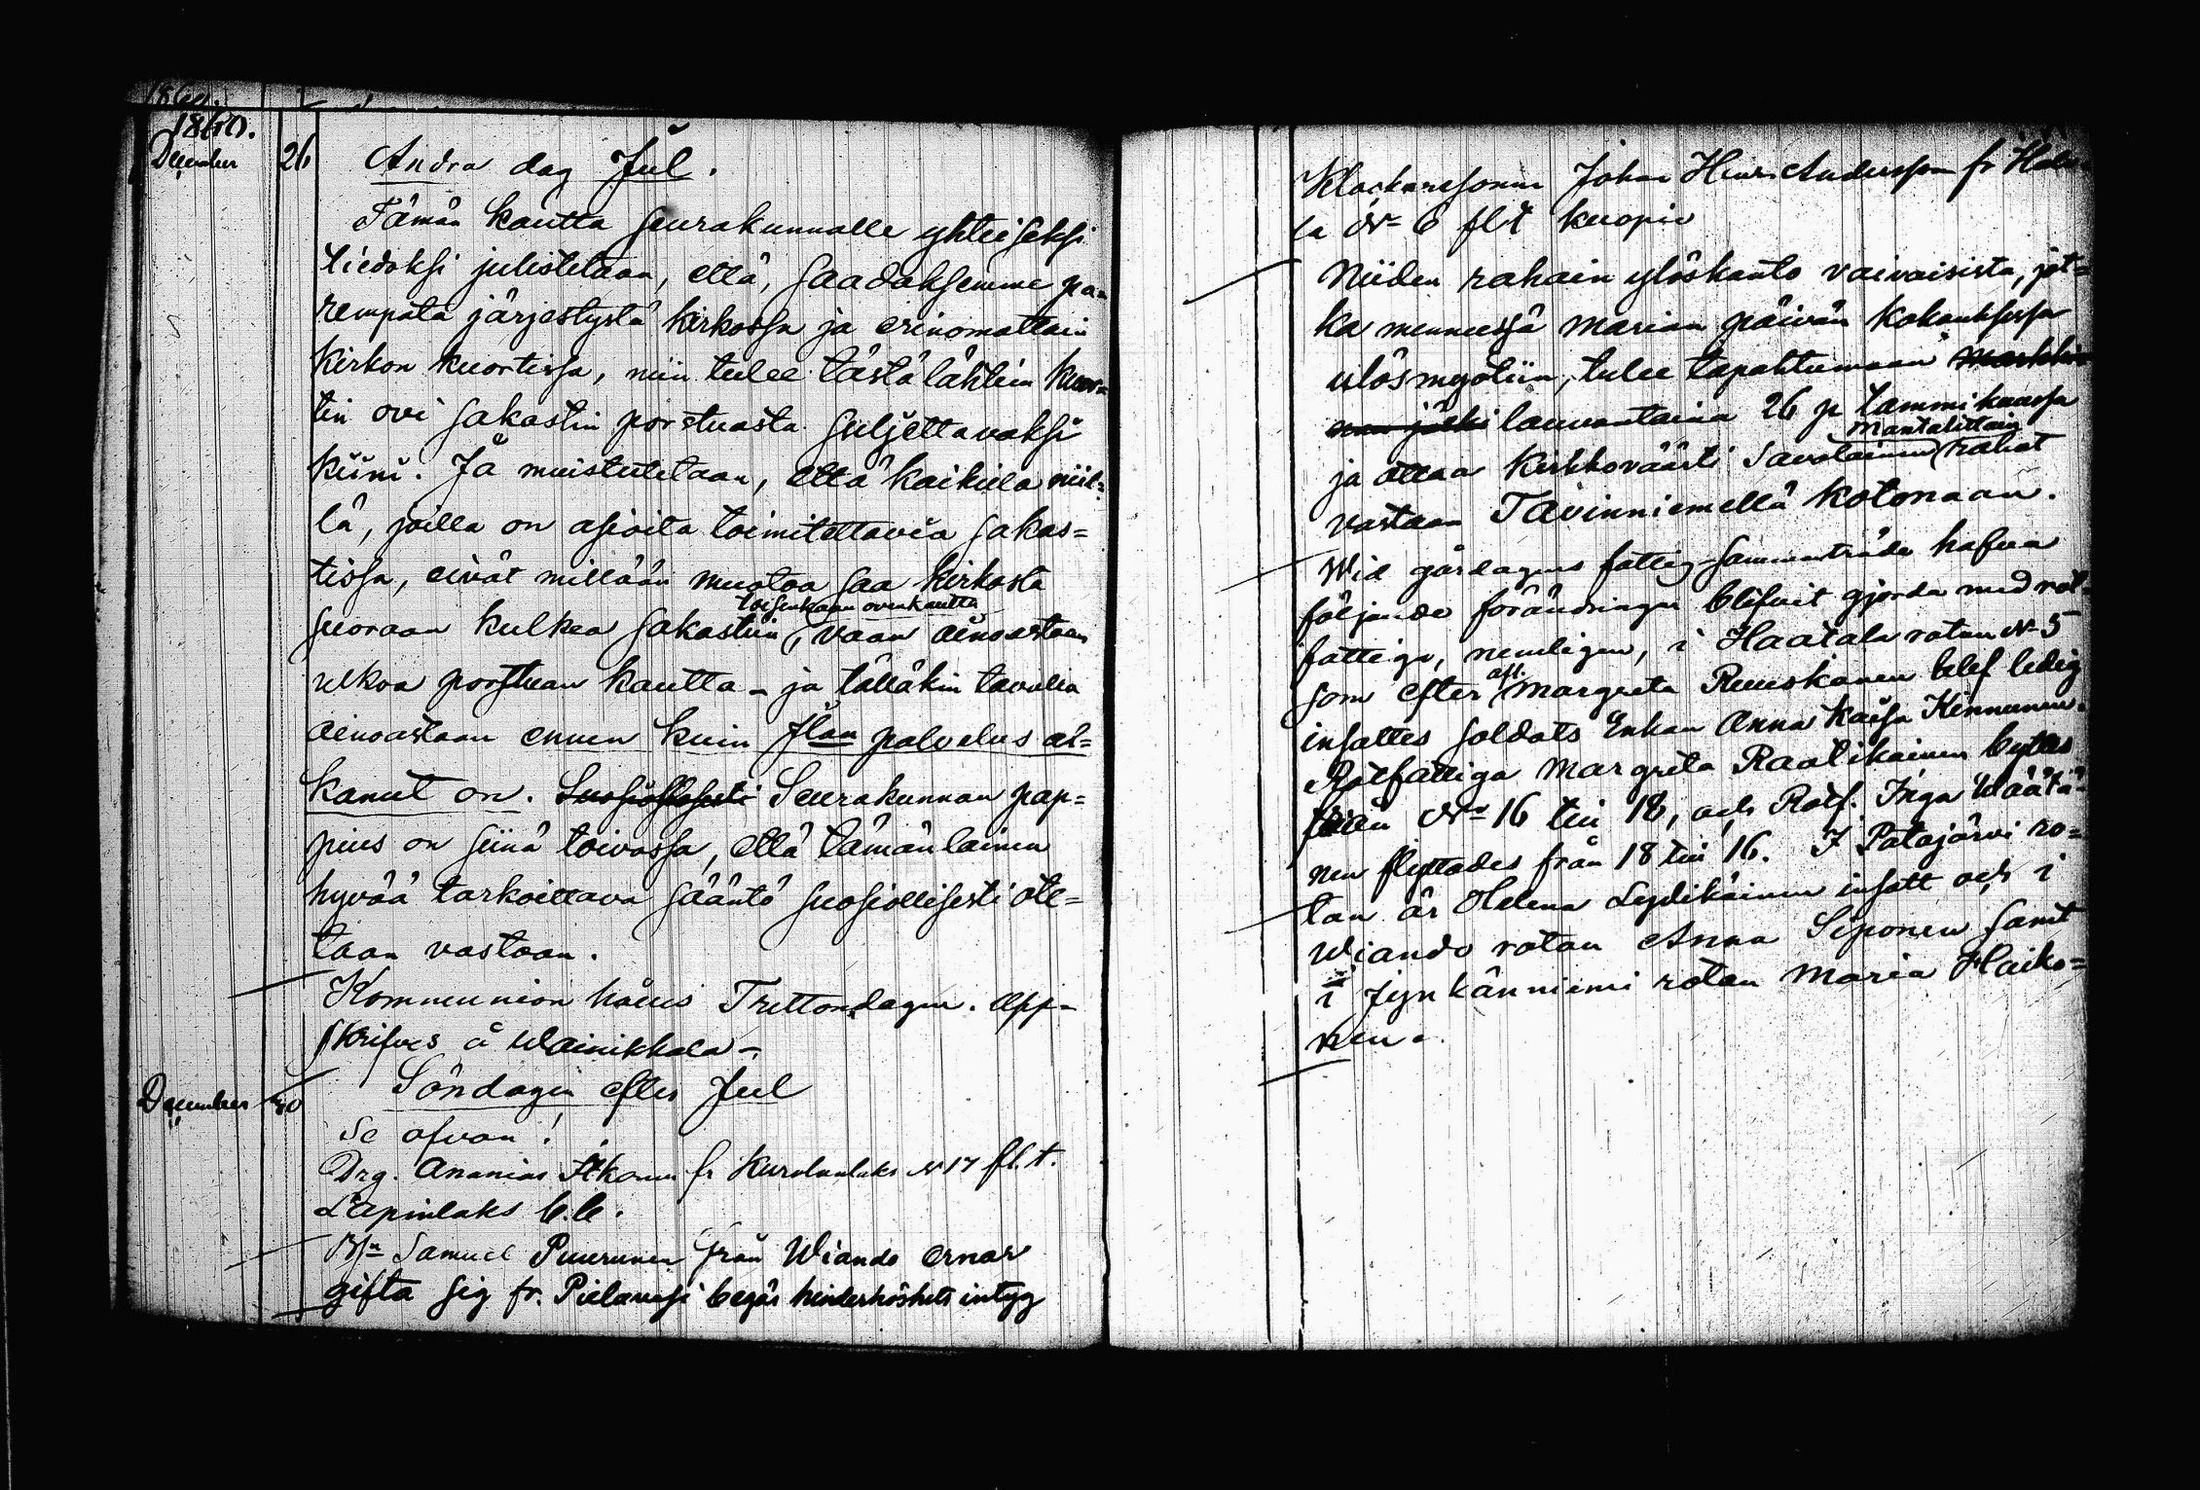 1860.
1860.
December 26 Andra dag Jul.
Tämän kautta seurakunnalle yhteiseksi
tiedoksi julistetaan, että, saadaksemme pa-
rempata järjestystä kirkossa ja erinomattain
kirkon kuortissa, niin tulee tästä lähtein kuor-
tin ovi sakastin porstuasta suljettavaksi
kiini. Ja muistutetaan, että kaikilla niil-
lä, joilla on asioita toimitettavia sakas-
tissa, eivät millään muotoa saa kirkosta
toisenkaan oven kautta
suoraan kulkea sakastiin, vaan ainoastaan
ulkoa porstuan kautta - ja tälläkin tavalla
ainoastaan ennen kuin Jlan palvelus al-
kanut on. Suosiollisesti Seurakunnan pap-
pius on siinä toivossa, että tämänlainen
hyvää tarkoittava sääntö suosiollisesti ote-
taan vastaan.
Kommunion hålles Trettondagen. Upp-
skrifves å Wainikkala -
December 30 Söndagen efter Jul
Se ofvan!
Drg. Ananias fr Kurolanlaks N 17 fl.t.
Lapinlaks b.b.
Bsn Samuel Puurunen från Wiando ernar
gifta sig fr. Pielavesi begär hinderlöshets intyg
Klockaresonen Johan Henr. Andersson fr
la No 6 flt Kuopio
Niiden rahain ylöskanto vaivaisista, jot-
ka menneessä Marian päivän kokouksessa
ulosmyötiin, tulee tapahtumaan
jälki lauvantaina 26 p tammikuussa
mantalittain
ja ottaa Kirkkoväärti Savolainen rahat
vastaan Tavinniemellä kotonaan.
Wid gårdagens fattig-sammanträde hafva
följande förändringar blifvit gjorda med rot-
fattiga, nemligen, i Haatala rotan No 5
afl.
som efter Margreta Ruuskanen blef ledig
insattes Soldats Enkan Anna Kaisa Kinnunen.
Rotfattiga Margreta Raatikainen byttes
från No 16 till 18, och Rotf. Inga Wäätä-
nen flyttades från 18 till 16. I Patajärvi ro-
tan är Helena Lydikäinen insatt och i
Wiando rotan Anna Seponen samt
i Jynkänniemi rotan Maria Haiko-
nen.